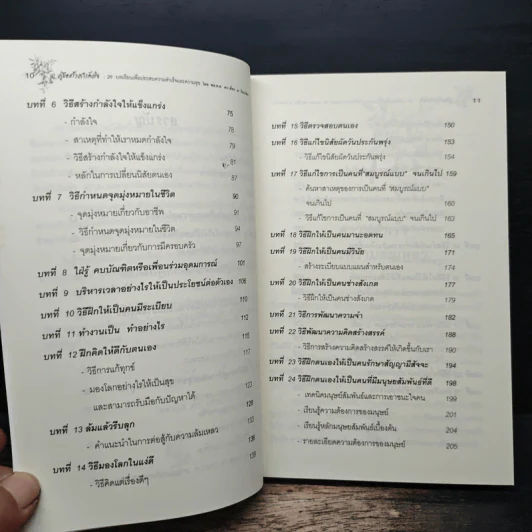 10
บทที่ 6 วิธีสร้างกำลังใจให้แข็งแกร่ง 75
- กำลังใจ 78
- สาเหตุที่ทำให้เราหมดกำลังใจ 79
- วิธีสร้างกำลังใจให้แข็งแกร่ง 81
- หลักในการเปลี่ยนนิสัยตนเอง 87
บทที่ 7 วิธีกำหนดจุดมุ่งหมายในชีวิต 90
- จุดมุ่งหมายเกี่ยวกับอาชีพ 91
- วิธีกำหนดจุดมุ่งหมาย 94
- จุดมุ่งหมายเกี่ยวกับการมีครอบครัว 97
บทที่ 8 ใฝ่รู้ คบบัณฑิตหรือเพื่อนร่วมอุดมการณ์ 101
บทที่ 9 บริหารเวลาอย่างไรให้เป็นประโยชน์ต่อตัวเอง 106
บทที่ 10 วิธีฝึกให้เป็นคนมีระเบียบ
บทที่ 11 ทำงานเป็น ทำอย่างไร
บทที่ 12 ฝึกคิดให้ดีกับตนเอง
- วิธีการแก้ทุกข์
- มองโลกอย่างไรให้เป็นสุข
และสามารถรับมือกับปัญหาได้
บทที่ 13 ล้มแล้วรีบลุก
- คำแนะนำในการต่อสู้กับความล้มเหลว
บทที่ 14 วิธีมองโลกในแง่ดี
- วิธีคิดแต่เรื่องดีๆ
11
บทที่ 15 วิธีตรวจสอบตนเอง 150
บทที่ 16 วิธีแก้ไขนิสัยผัดวันประกันพรุ่ง 153
- วิธีแก้ไขนิสัยผัดวันประกันพรุ่ง 154
บทที่ 17 วิธีแก้ไขการเป็นคนที่"สมบูรณ์แบบ" จนเกินไป 159
- ค้นหาสาเหตุของการเป็นคนที่ "สมบูรณ์แบบ"
จนเกินไป 160
- วิธีแก้ไขการเป็นคนที่ "สมบูรณ์แบบ" จนเกินไป 163
บทที่ 18 วิธีฝึกให้เป็นคนมานะอดทน 165
บทที่ 19 วิธีฝึกให้เป็นคนมีวินัย 171
- สร้างระเบียบแบบแผนสำหรับตนเอง 174
บทที่ 20 วิธีฝึกให้เป็นคนช่างสังเกต 177
- วิธีฝึกให้เป็นคนช่างสังเกต 180
บทที่ 21 วิธีการพัฒนาความจำ 182
บทที่ 22 วิธีพัฒนาความคิดสร้างสรรค์ 188
- วิธีการสร้างความคิดสร้างสรรค์ให้เกิดขึ้นกับเรา 190
บทที่ 23 วิธีฝึกตนเองให้เป็นคนรักษาสัญญามีสัจจะ 194
บทที่ 24 วิธีฝึกตนเองให้เป็นคนที่มีมนุษยสัมพันธ์ที่ดี 198
- เทคนิคมนุษยสัมพันธ์และการเอาชนะใจคน 199
- เรียนรู้ความต้องการของมนุษย์ 201
- เรียนรู้หลักมนุษยสัมพันธ์เบื้องต้น 204
- รายละเอียดความต้องการของมนุษย์ 205